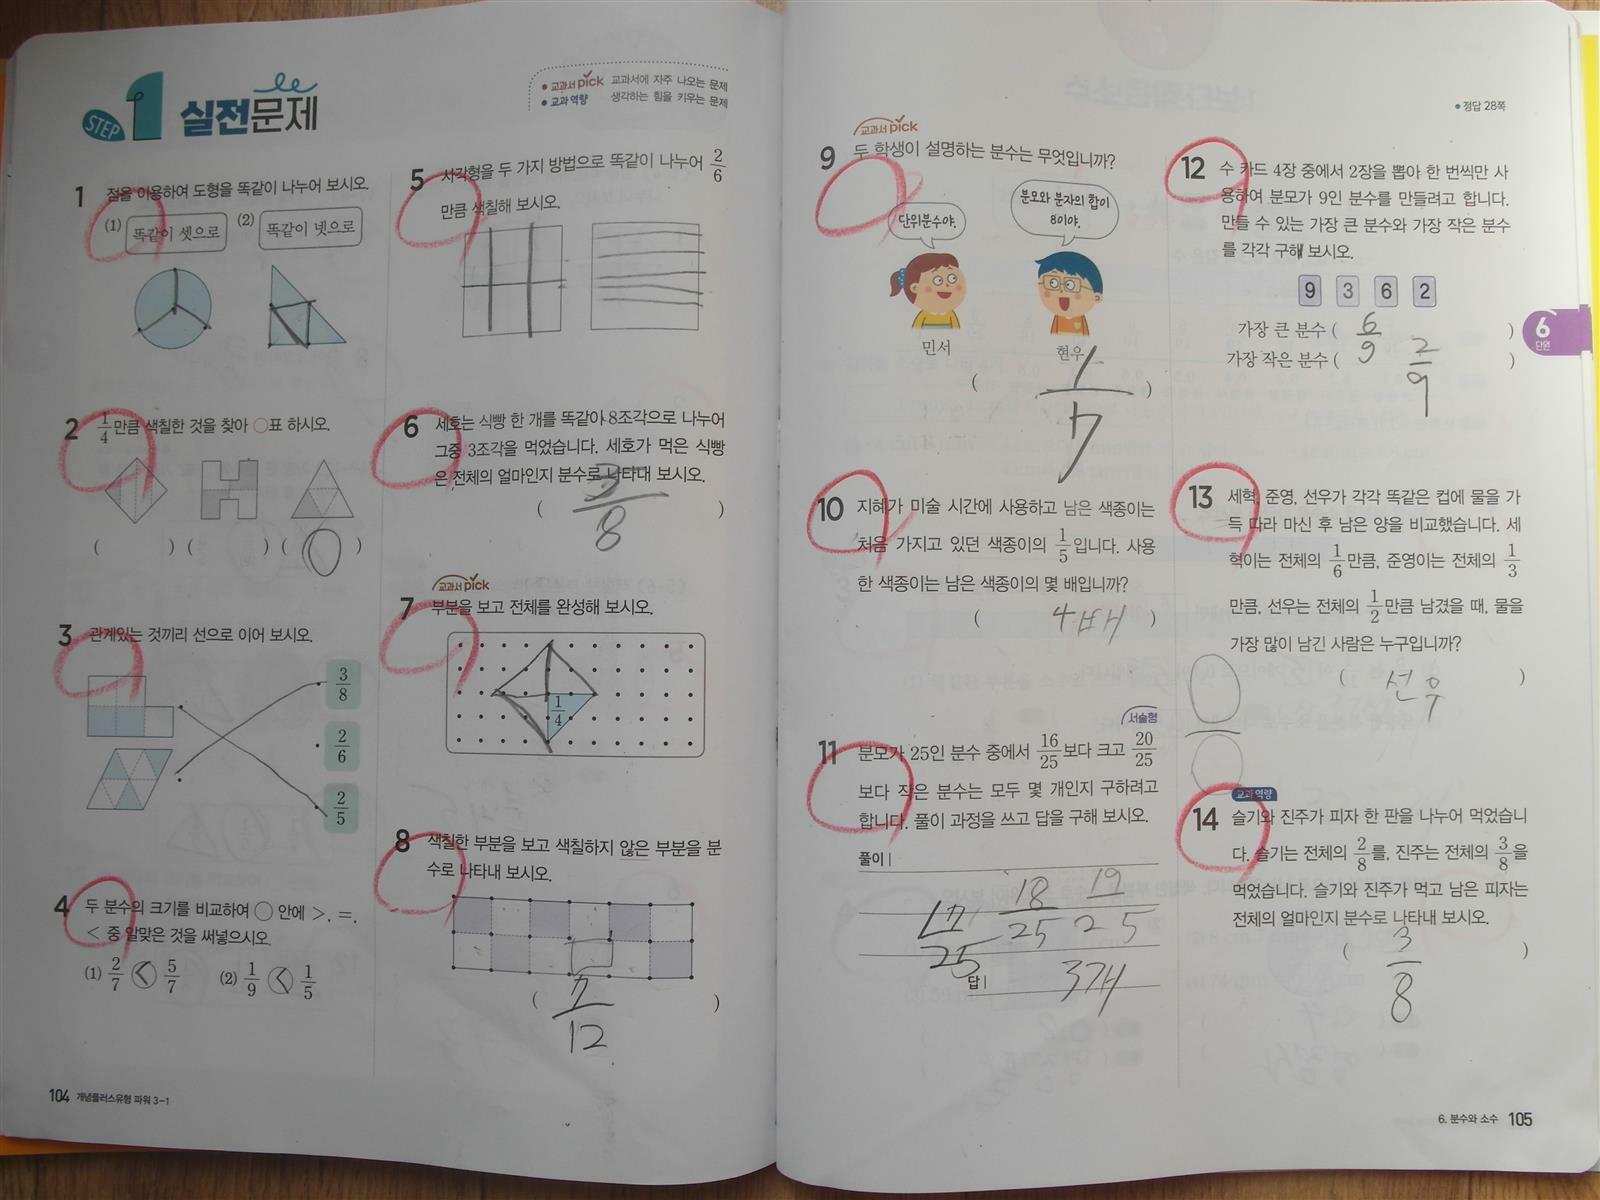 STEP 1 실전문제
• 교과서 pick 교과서에 자주 나오는 문제
• 교과 역량 생각하는 힘을 키우는 문제
1 점을 이용하여 도형을 똑같이 나누어 보시오.
(1) 똑같이 셋으로 (2) 똑같이 넷으로
2 1/4만큼 색칠한 것을 찾아 ○표 하시오.
( ) ( ) ( ○ )
3 관계있는 것끼리 선으로 이어 보시오.
3/8
2/6
2/5
4 두 분수의 크기를 비교하여 ○ 안에 >, =,
< 중 알맞은 것을 써넣으시오.
(1) 2/7 < 5/7 (2) 1/9 < 1/5
104 개념플러스유형 파워 3-1
5 사각형을 두 가지 방법으로 똑같이 나누어 2/6
만큼 색칠해 보시오.
6 세호는 식빵 한 개를 똑같이 8조각으로 나누어
그중 3조각을 먹었습니다. 세호가 먹은 식빵
은 전체의 얼마인지 분수로 나타내 보시오.
( 3/8 )
교과서 pick
7 부분을 보고 전체를 완성해 보시오.
1/4
8 색칠한 부분을 보고 색칠하지 않은 부분을 분
수로 나타내 보시오.
( 7/12 )
교과서 pick
9 두 학생이 설명하는 분수는 무엇입니까?
단위분수야.
분모와 분자의 합이
8이야.
민서 현우
( 1/7 )
10 지혜가 미술 시간에 사용하고 남은 색종이는
처음 가지고 있던 색종이의 1/5입니다. 사용
한 색종이는 남은 색종이의 몇 배입니까?
( 4배 )
서술형
11 분모가 25인 분수 중에서 16/25보다 크고 20/25
보다 작은 분수는 모두 몇 개인지 구하려고
합니다. 풀이 과정을 쓰고 답을 구해 보시오.
풀이 |
17/25 18/25 19/25
답 | 3개
• 정답 28쪽
12 수 카드 4장 중에서 2장을 뽑아 한 번씩만 사
용하여 분모가 9인 분수를 만들려고 합니다.
만들 수 있는 가장 큰 분수와 가장 작은 분수
를 각각 구해 보시오.
9 3 6 2
가장 큰 분수 ( 6/9 )
가장 작은 분수 ( 2/9 )
6
단원
13 세혁, 준영, 선우가 각각 똑같은 컵에 물을 가
득 따라 마신 후 남은 양을 비교했습니다. 세
혁이는 전체의 1/6만큼, 준영이는 전체의 1/3
만큼, 선우는 전체의 1/2만큼 남겼을 때, 물을
가장 많이 남긴 사람은 누구입니까?
( 선우 )
교과 역량
14 슬기와 진주가 피자 한 판을 나누어 먹었습니
다. 슬기는 전체의 2/8를, 진주는 전체의 3/8을
먹었습니다. 슬기와 진주가 먹고 남은 피자는
전체의 얼마인지 분수로 나타내 보시오.
( 3/8 )
6. 분수와 소수 105